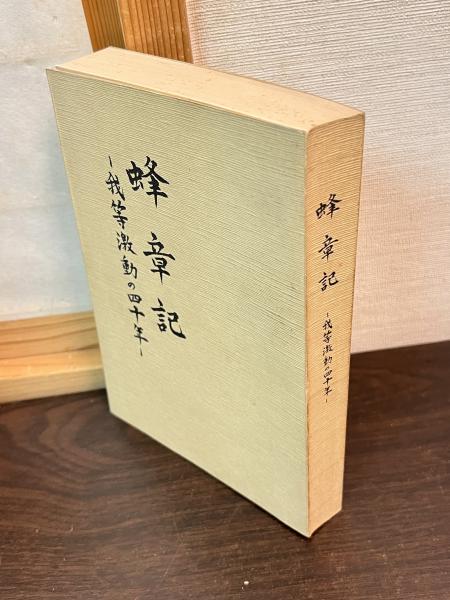 蜂章記
-我等激動の四十年-
蜂章記
-我等激動の四十年-